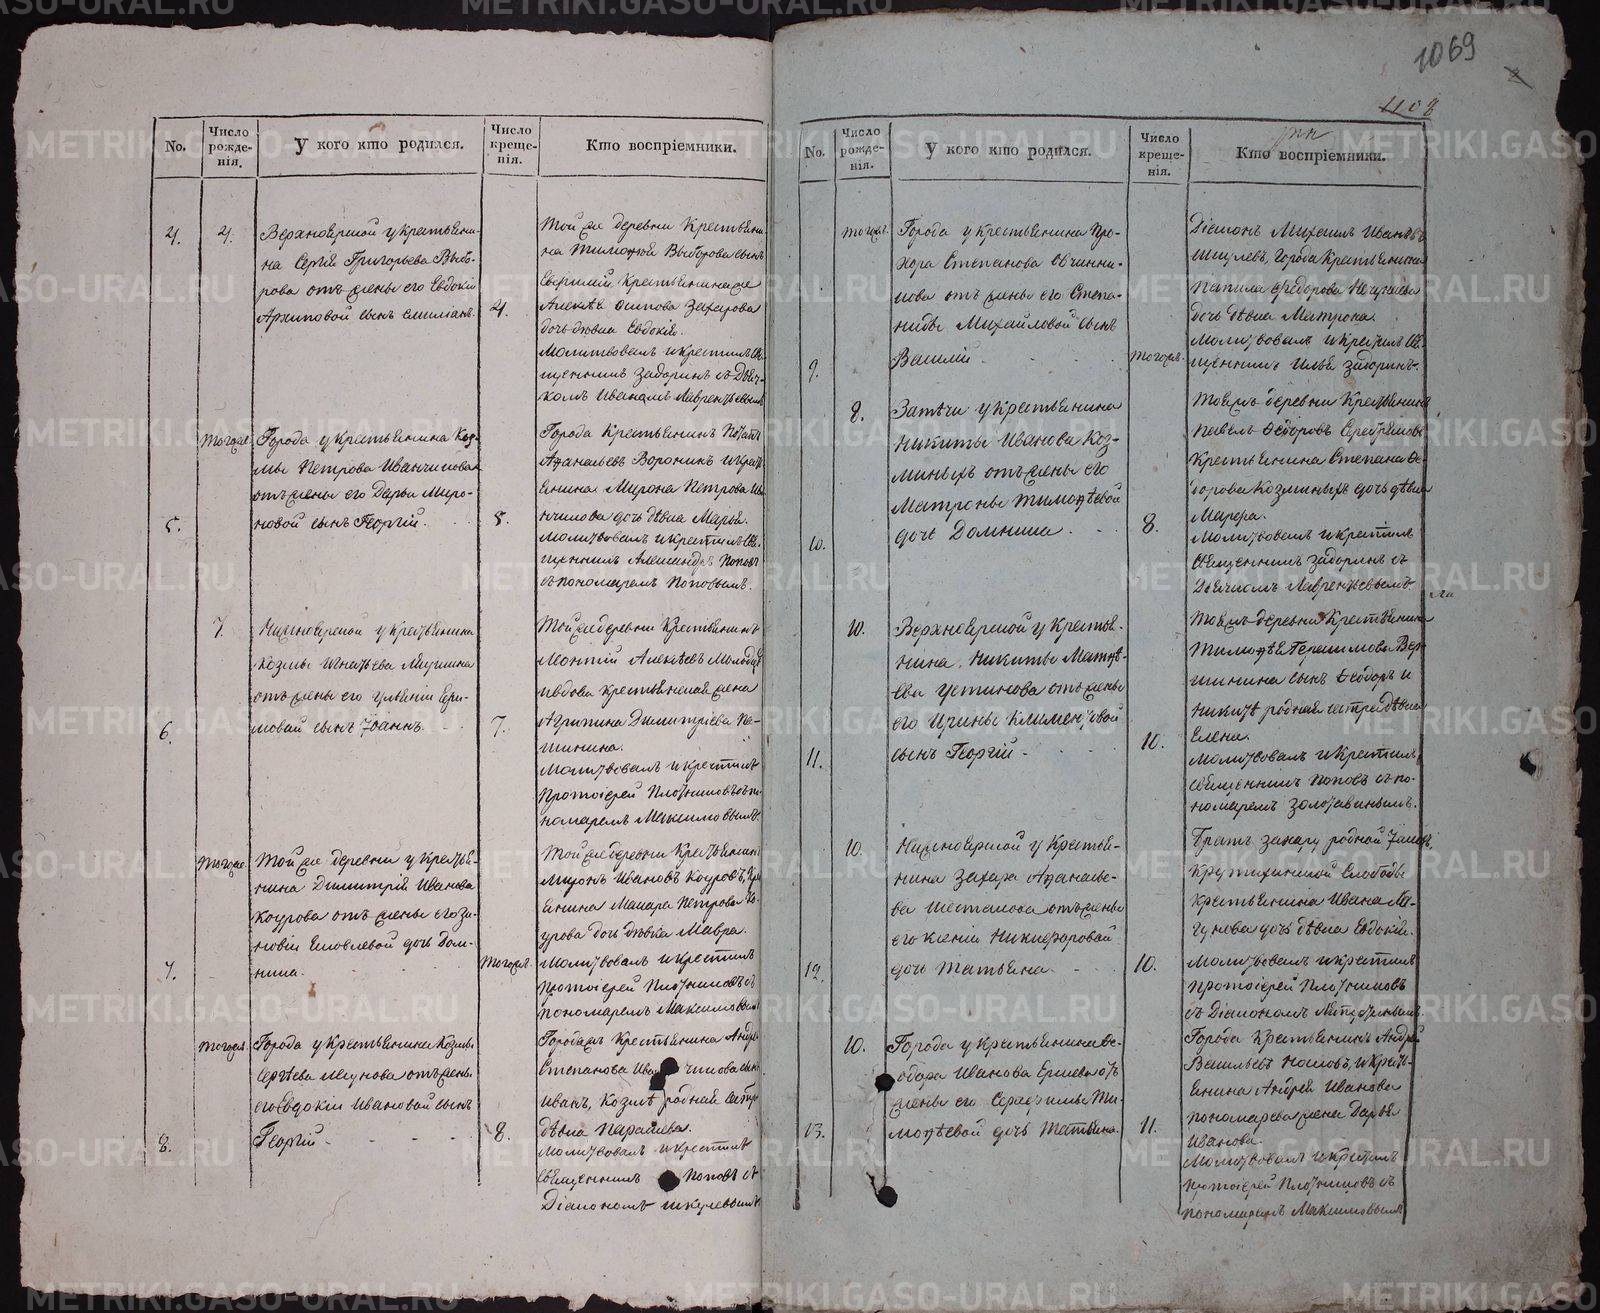 1069
No.
Число рожде-нія.
У кого кто родился.
Число креще-нія.
Кто воспріемники.
4.
4.
Верхноярской у крестьяни-
на Сергія Григорьева Выбо-
рова отъ жены его Евдокіи
Архиповой сынъ Емиліанъ.
4.
Той же деревни Крестьяни-
на Тимофея Выборова сынъ
Крестьянина же
Алексѣя Осипова Захарова
дочь дѣвка Евдокія.
Молитвовалъ и крестилъ Свя-
щенникъ Задоринъ съ Дьяч-
комъ Иваномъ Лаврентьевымъ
5.
Тогоже
Города у крестьянина Коз-
мы Петрова Иванчикова
отъ жены его Дарьи Миро-
новой сынъ Георгій.
5.
Города Крестьянинъ Потапъ
Афанасьевъ Воронинъ и крест
янина Мирона Петрова Ива
нчикова дочь дѣвка Марья.
Молитвовалъ и крестилъ Свя-
щенникъ Александръ Поповъ
съ пономаремъ Поповымъ.
6.
7.
Нижноярской у Крестьянина
Козмы Игнатьева
отъ жены его Уліяніи
сынъ Іоаннъ.
7.
Той же деревни Крестьянинъ
Леонтій Алексѣевъ
крестьянская жена
Агрипина Димитріева Пе-
шнина.
Молитвовалъ и крестилъ
Протоіерей Плотниковъ съ по
номаремъ Максимовымъ.
7.
Тогоже
Той же деревни у Крестья-
нина Димитрія Иванова
Коурова отъ жены его Зи-
новіи Яковлевой дочь Дом-
ника.
Тогоже
Той же деревни Крестьянинъ
Миронъ Ивановъ Коуровъ, Кре
янина Макара Петрова Ко-
урова дочь дѣвка Мавра.
Молитвовалъ и крестилъ
Протоіерей Плотниковъ съ
пономаремъ Максимовымъ
8.
Тогоже
Города у крестьянина Козмы
Сергѣева отъ жены
его Евдокіи Ивановой сынъ
Георгій
8.
Города Крестьянина Андрея
Степанова сынъ
Иванъ, Козмѣ родная сестра
дѣвка Параскева.
Молитвовалъ и крестилъ
священникъ Поповъ съ
Діакономъ Шкулевымъ
1108
No.
Число рожде-нія.
У кого кто родился.
Число креще-нія.
Кто воспріемники.
9.
Тогоже
Города у крестьянина Про-
хора Степанова Овчинни-
кова отъ жены его Степа-
ниды Михайловой сынъ
Василій
Тогоже
Діаконъ Михаилъ Ивановъ
Шкулевъ, Города Крестьянина
Федорова
дочь дѣвка Матрона.
Молитвовалъ и крестилъ Свя-
щенникъ Илья Задоринъ.
10.
8.
Затечи у крестьянина
Никиты Иванова Коз-
миныхъ отъ жены его
Матроны Тимофѣевой
дочь Домника
8.
Тоежъ деревни Крестьянинъ
Павелъ Феодоровъ
Крестьянина Степана Фе-
дорова Козминыхъ дочь дѣвка
Марфа.
Молитвовалъ и крестилъ
священникъ Задоринъ съ
Дьячкомъ Лаврентьевымъ
11.
10.
Верхноярской у Крестья-
нина Никиты Матфѣ-
ева Устинова отъ жены
его Ирины Климентовой
сынъ Георгій
10.
Тоежъ деревни Крестьянина
Тимофѣя Герасимова Вер-
шинина сынъ Феодоръ и
Никитѣ родная сестра дѣвка
Елена.
Молитвовалъ и крестилъ
священникъ Поповъ съ по-
номаремъ Золотавинымъ.
12.
10.
Нижноярской у Крестья-
нина Захара Афанасье-
ва Шестакова отъ жены
его Ксеніи Никифоровой
дочь Татьяна
10.
Братъ Захару родной Іаковъ,
Крутихинской Слободы
крестьянина Ивана
дочь дѣвка Евдокія.
Молитвовалъ и крестилъ
протоіерей Плотниковъ
съ Діакономъ
13.
10.
Города у Крестьянина Фе-
одора Иванова Ершева отъ
жены его Серафимы Ти-
мофѣевой дочь Татьяна.
11.
Города Крестьянинъ Андрей
Васильевъ Носковъ, и Крест-
янина Андрея Иванова
Пономарева жена Дарья
Иванова.
Молитвовалъ и крестилъ
протоіерей Плотниковъ съ
пономаремъ Максимовымъ